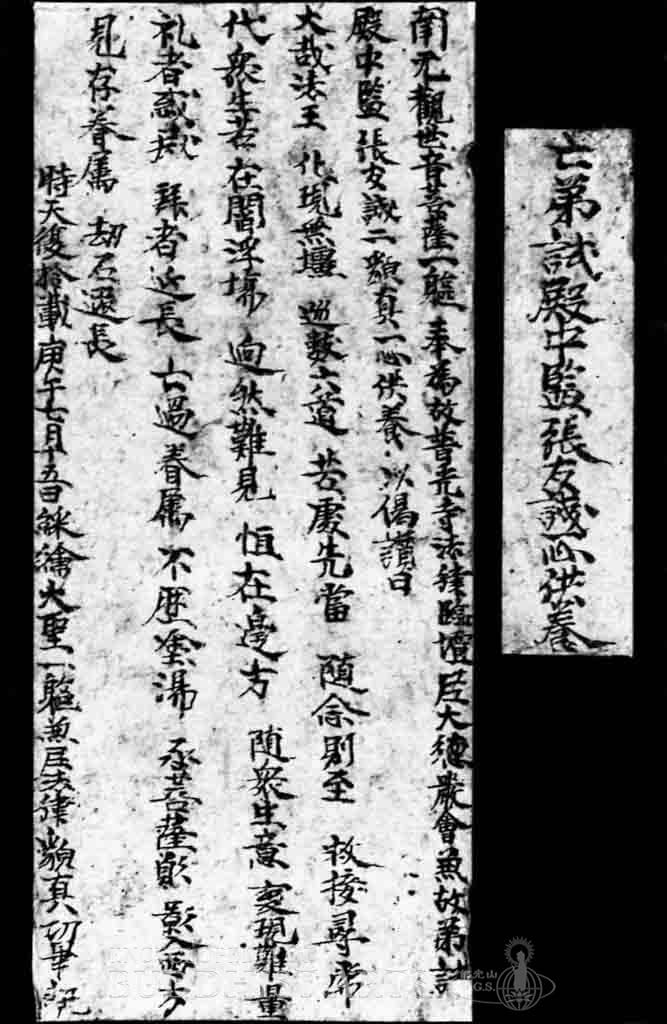 亡弟試殿中監張友誠一心供養
南无觀世音菩薩一軀 奉為故普光寺法律臨壇尼大德嚴會兼故弟試
殿中監張友誠二邈真一心供養 以偈讚曰
大哉法王 化現無壃 巡歷六道 苦處先當 随念則至 救拔尋常
代衆生苦 在閻浮場 迥然難見 恒在邊方 随衆生意 變現難量
礼者滅殃 拜者延長 亡過眷屬 不歷塗湯 承菩薩願 影入西方
見存眷屬 劫石遐長
時天復拾載庚午七月十五日綵繪大聖一軀兼尼法律邈真功畢記